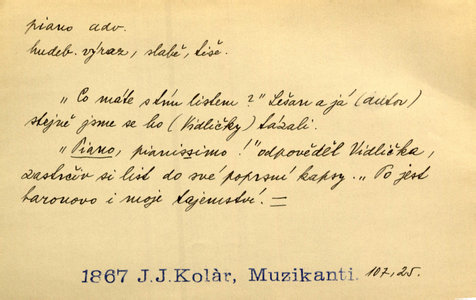 piano adv.
hudeb. výraz, slabě, tiše.
„Co máte s tím listem?" Lešan a já (autor)
stejně jsme se ho (Vidličky) tázali.
„Piano, pianissimo!" odpověděl Vidlička,
zastrčiv si list do své poprsní kapsy. „Tô jest
baronovo i moje tajemství. =
1867 J.J.Kolàr, Muzikanti. 107,25.